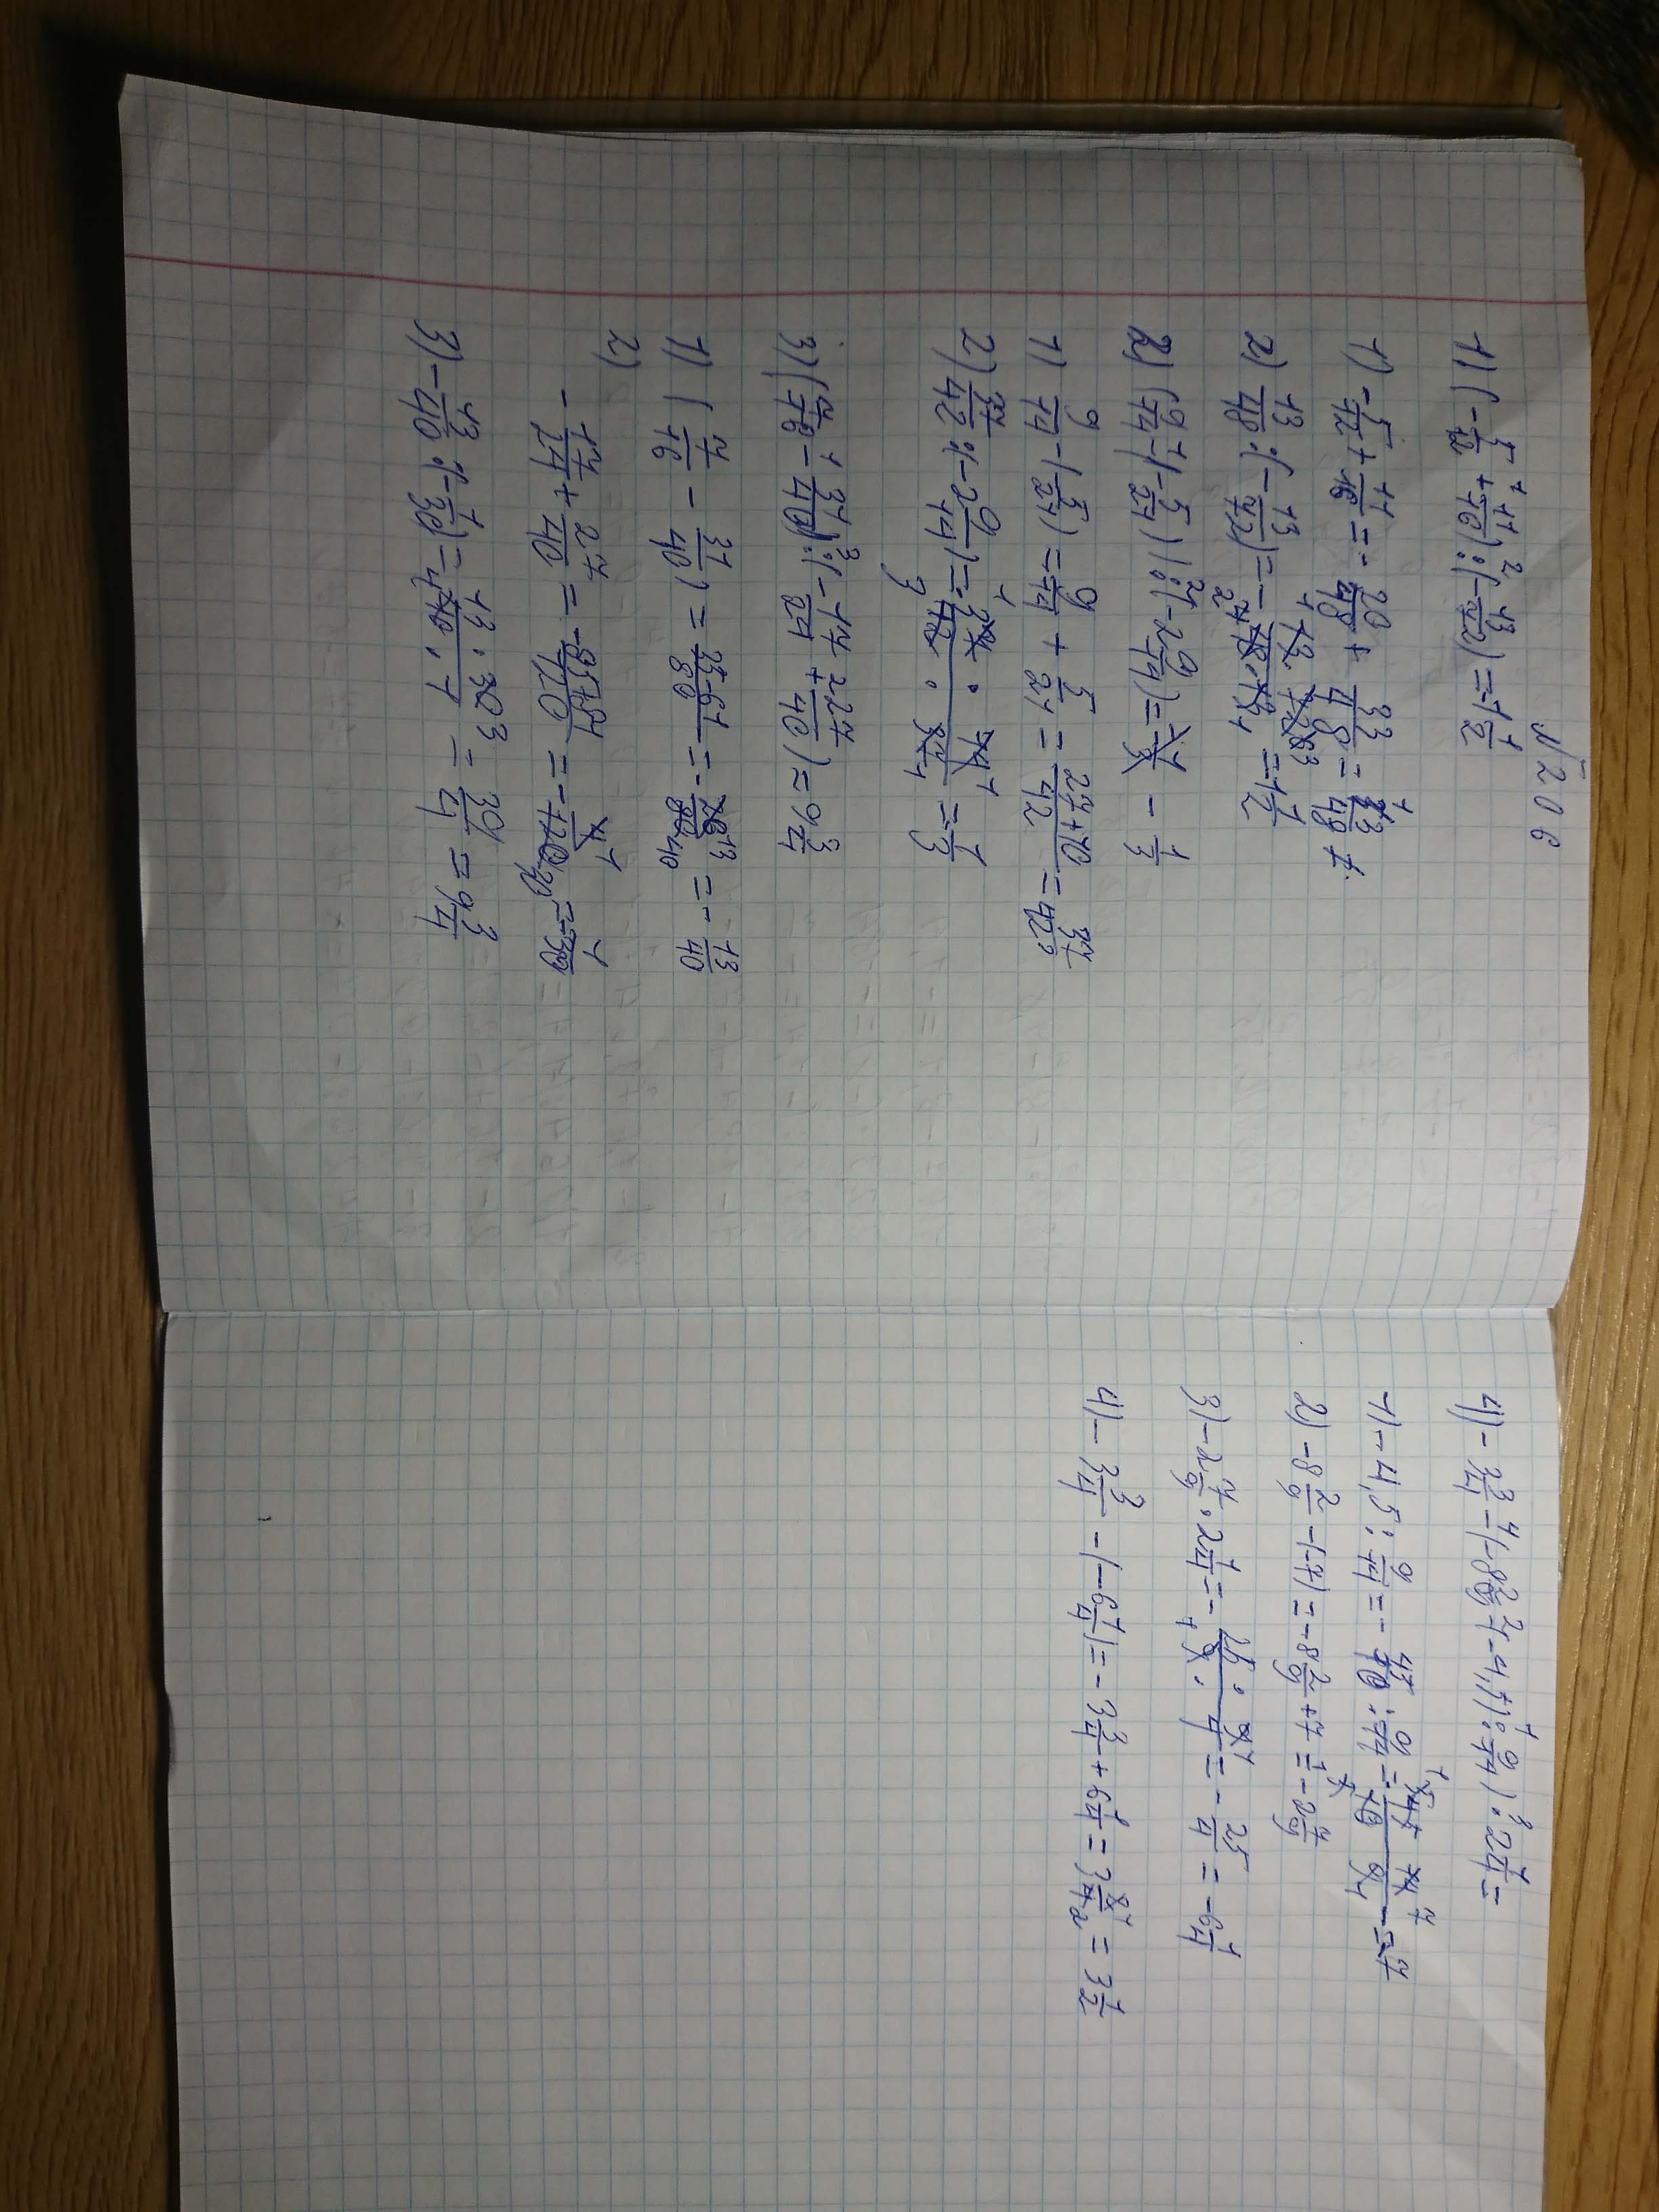 №206
1) (-5/12 + 11/16) : (-13/72) = -1 1/2
1) -5/12 + 11/16 = -20/48 + 33/48 = 13/48
2) 13/48 : (-13/72) = - 13·72/48·13 = -1 1/2
2) (9/14 - (-5/21)) : (-2 9/14) = - 1/3
1) 9/14 - (-5/21) = 9/14 + 5/21 = 27+10/42 = 37/42
2) 37/42 : (-2 9/14) = 37·14/42·37 = 1/3
3) (7/16 - 31/40) : (-17/24 + 27/40) = 9 3/4
1) (7/16 - 31/40) = 35-61/80 = -26/80 = -13/40
2)
-17/24 + 27/40 = -85+81/120 = -4/120 = -1/30
3) -13/40 : (-1/30) = 13·30/40·1 = 39/4 = 9 3/4
4) -3 3/4 - (-8 2/9 - (-4,5) : 9/14) : 2 1/4 =
1) -4,5 : 9/14 = -45/10 : 9/14 = 45·14/10·9 = -7
2) -8 2/9 - (-7) = -8 2/9 + 7 = -2 7/9
3) -2 7/9 · 2 1/4 = - 25·9/9·4 = -25/4 = -6 1/4
4) -3 3/4 - (-6 1/4) = -3 3/4 + 6 1/4 = 3 2/4 = 3 1/2